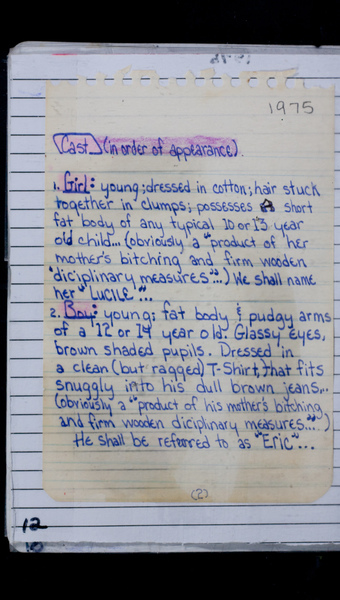 1975
Cast (in order of appearance).
1. Girl: young; dressed in cotton; hair stuck
together in clumps; possesses short
fat body of any typical 10 or 13 year
old child... (obviously a "product of her
mother's bitching and firm wooden
"diciplinary measures"...) We shall name
her "LuCile"...
2. Boy: young; fat body & pudgy arms
of a 12 or 14 year old. Glassy eyes,
brown shaded pupils. Dressed in
a clean (but ragged) T-Shirt, that fits
snuggly into his dull brown jeans...
(obviously a "product of his mother's bitching
and firm wooden diciplinary measures..." )
He shall be referred to as "Eric"...
(2)
12